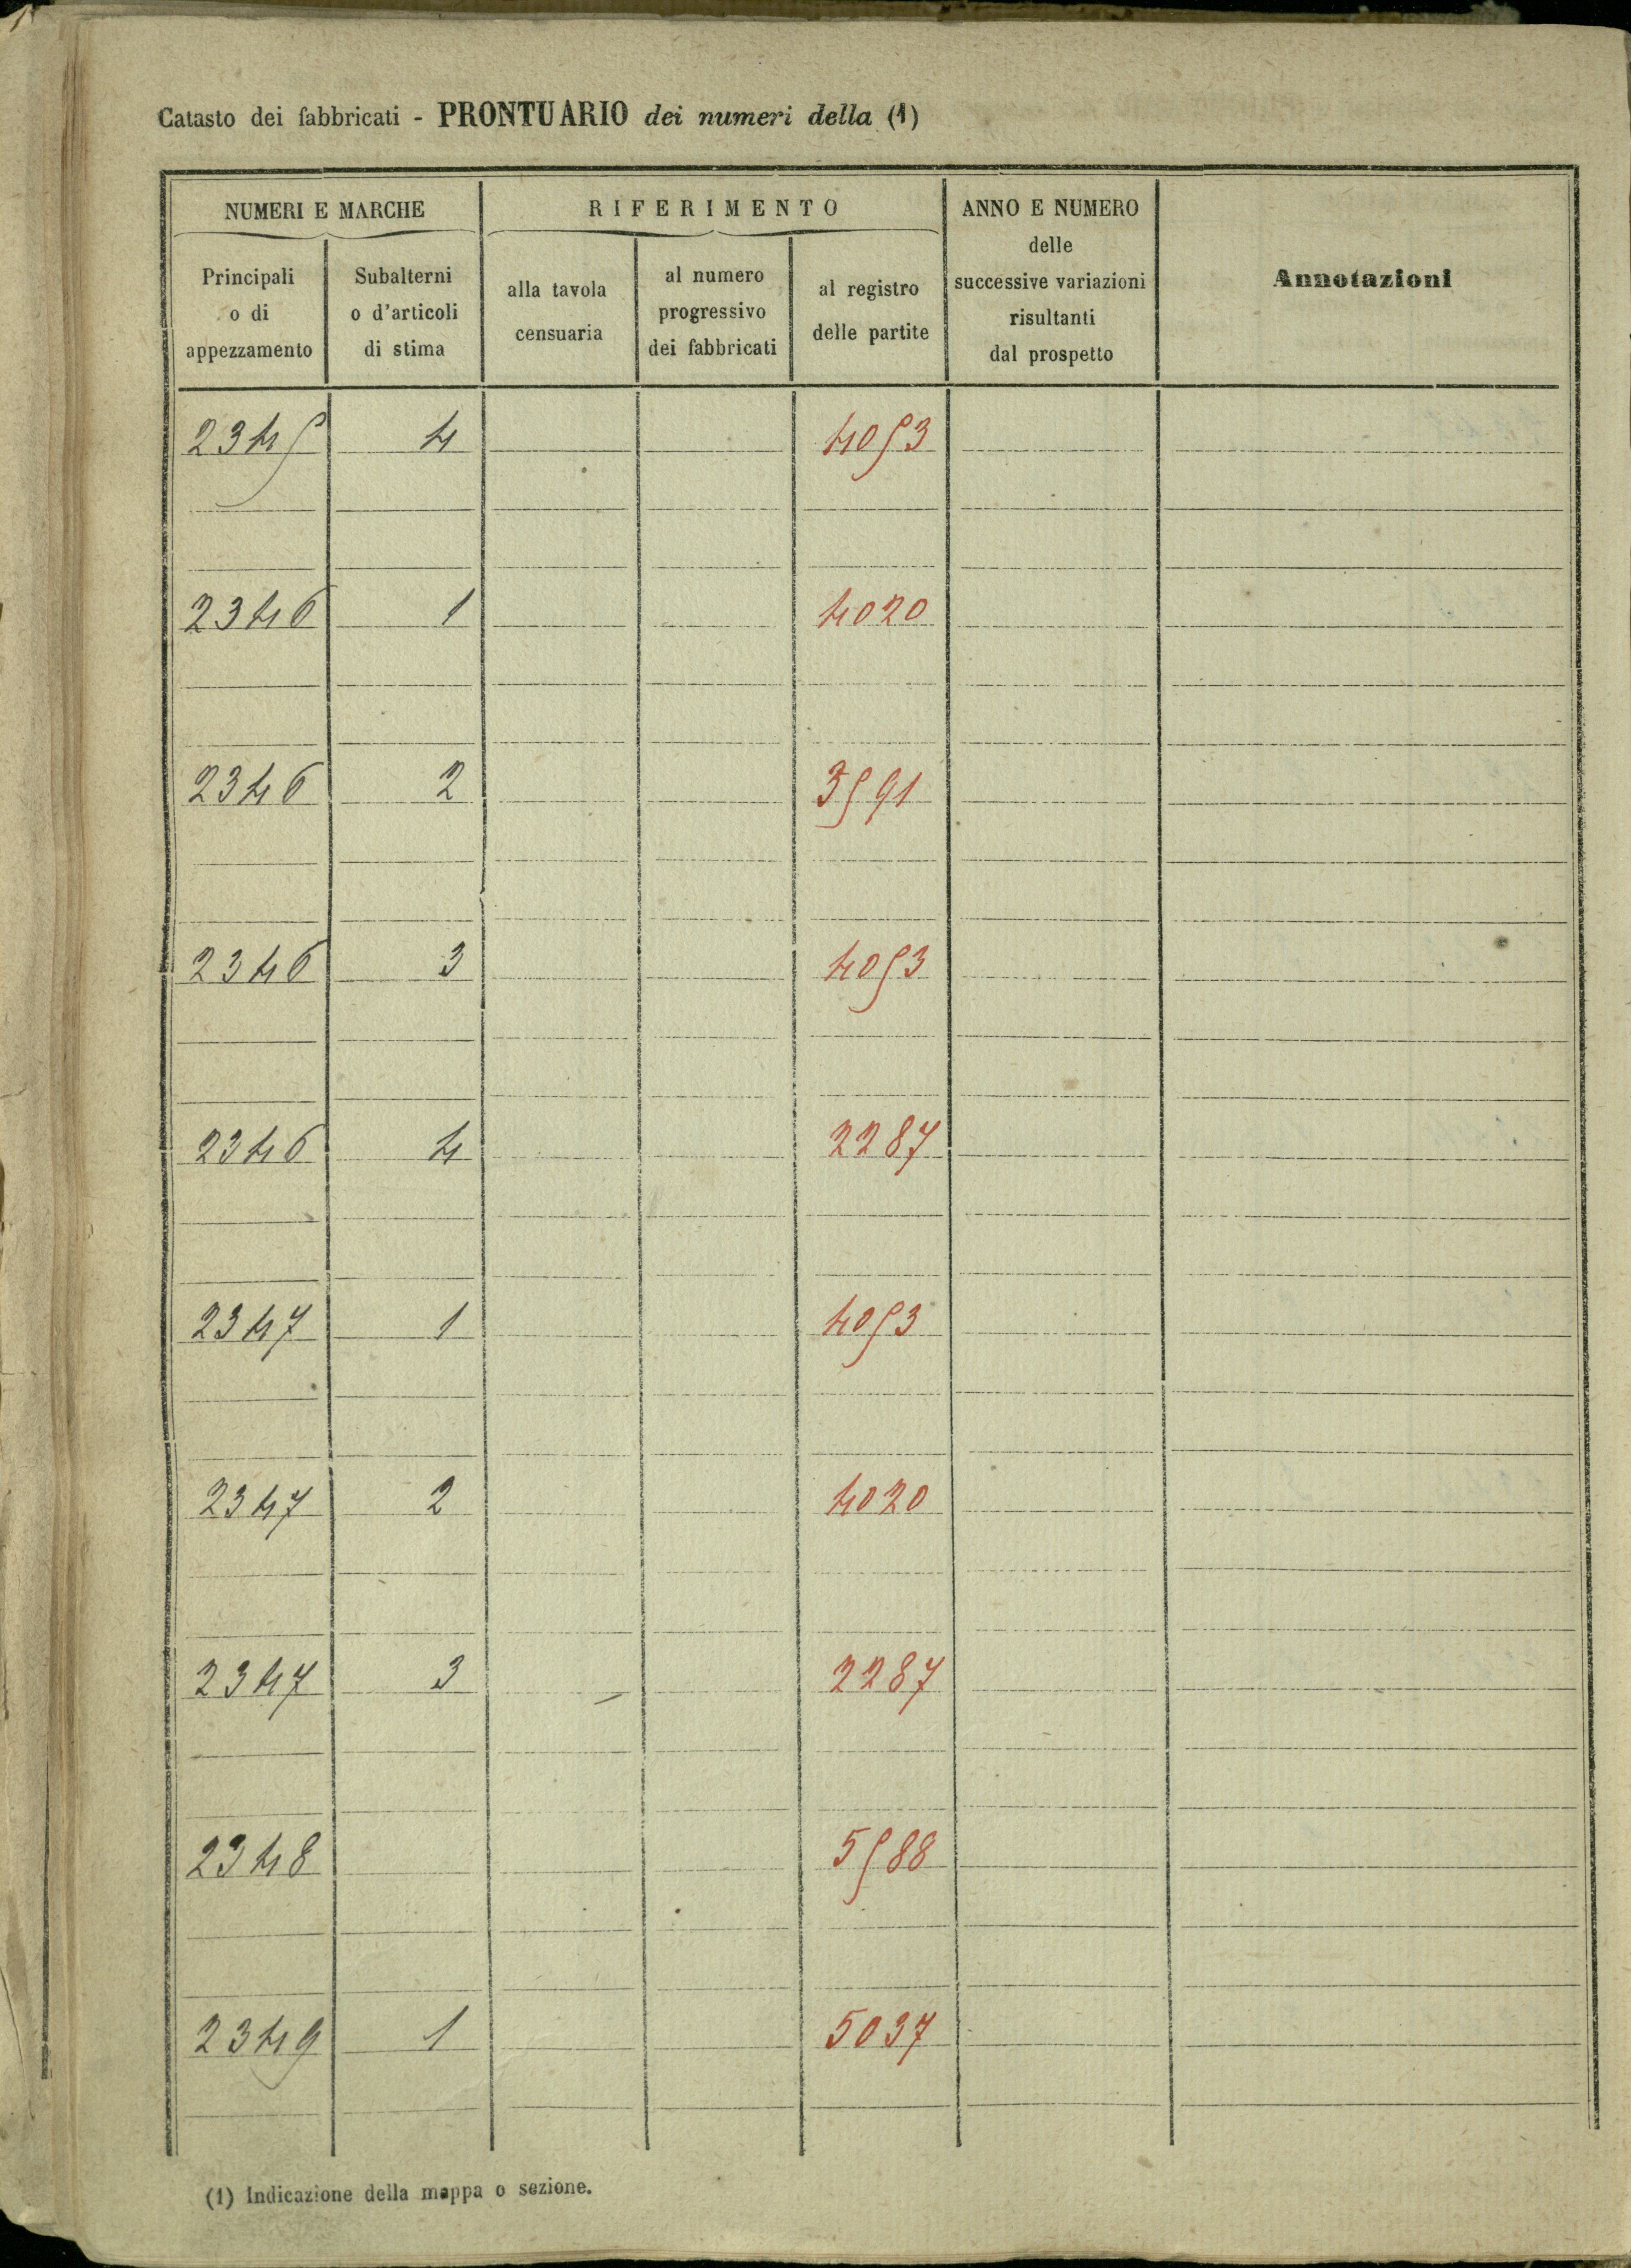 Catasto dei fabbricati - PRONTUARIO dei numeri della (1)
NUMERI E MARCHE
RIFERIMENTO
ANNO E NUMERO
delle
successive variazioni
risultanti
dal prospetto
Annotazioni
Principali
o di
appezzamento
Subalterni
o d'articoli
di stima
alla tavola
censuaria
al numero
progressivo
dei fabbricati
al registro
delle partite
2345 4 4053
2346 1 4020
2346 2 3591
2346 3 4053
2346 4 2287
2347 1 4053
2347 2 4020
2347 3 2287
2348 5588
2349 1 5037
(1) Indicazione della mappa o sezione.